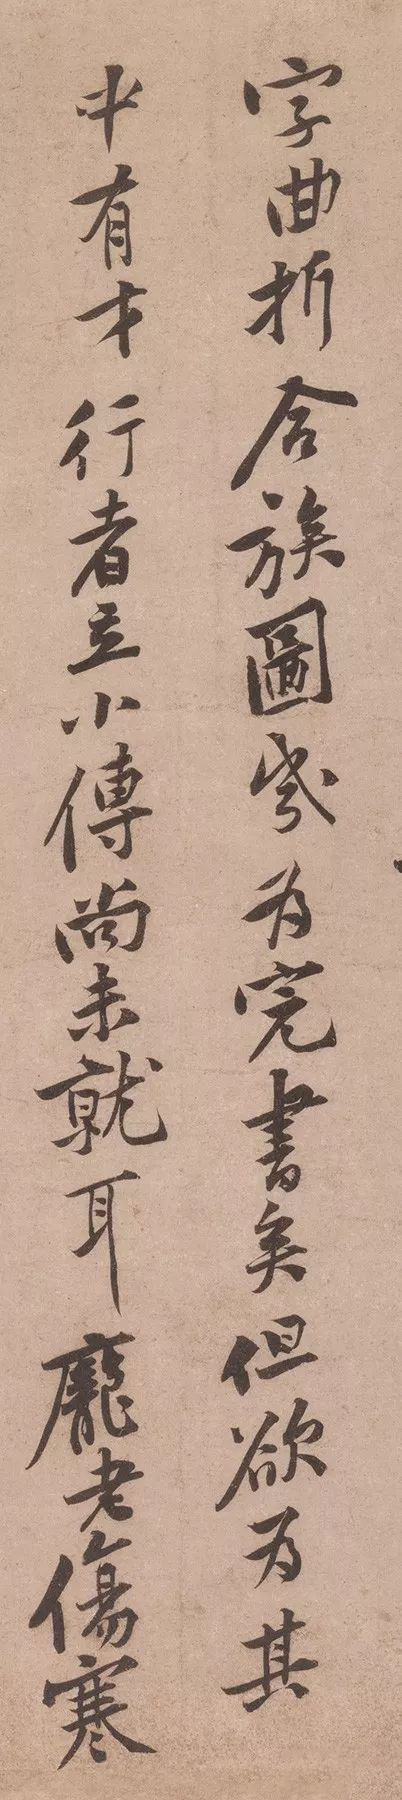 字曲折合族圖岁为完書矣但欲为其
中有才行者立小傳尚未就耳龐老傷寒